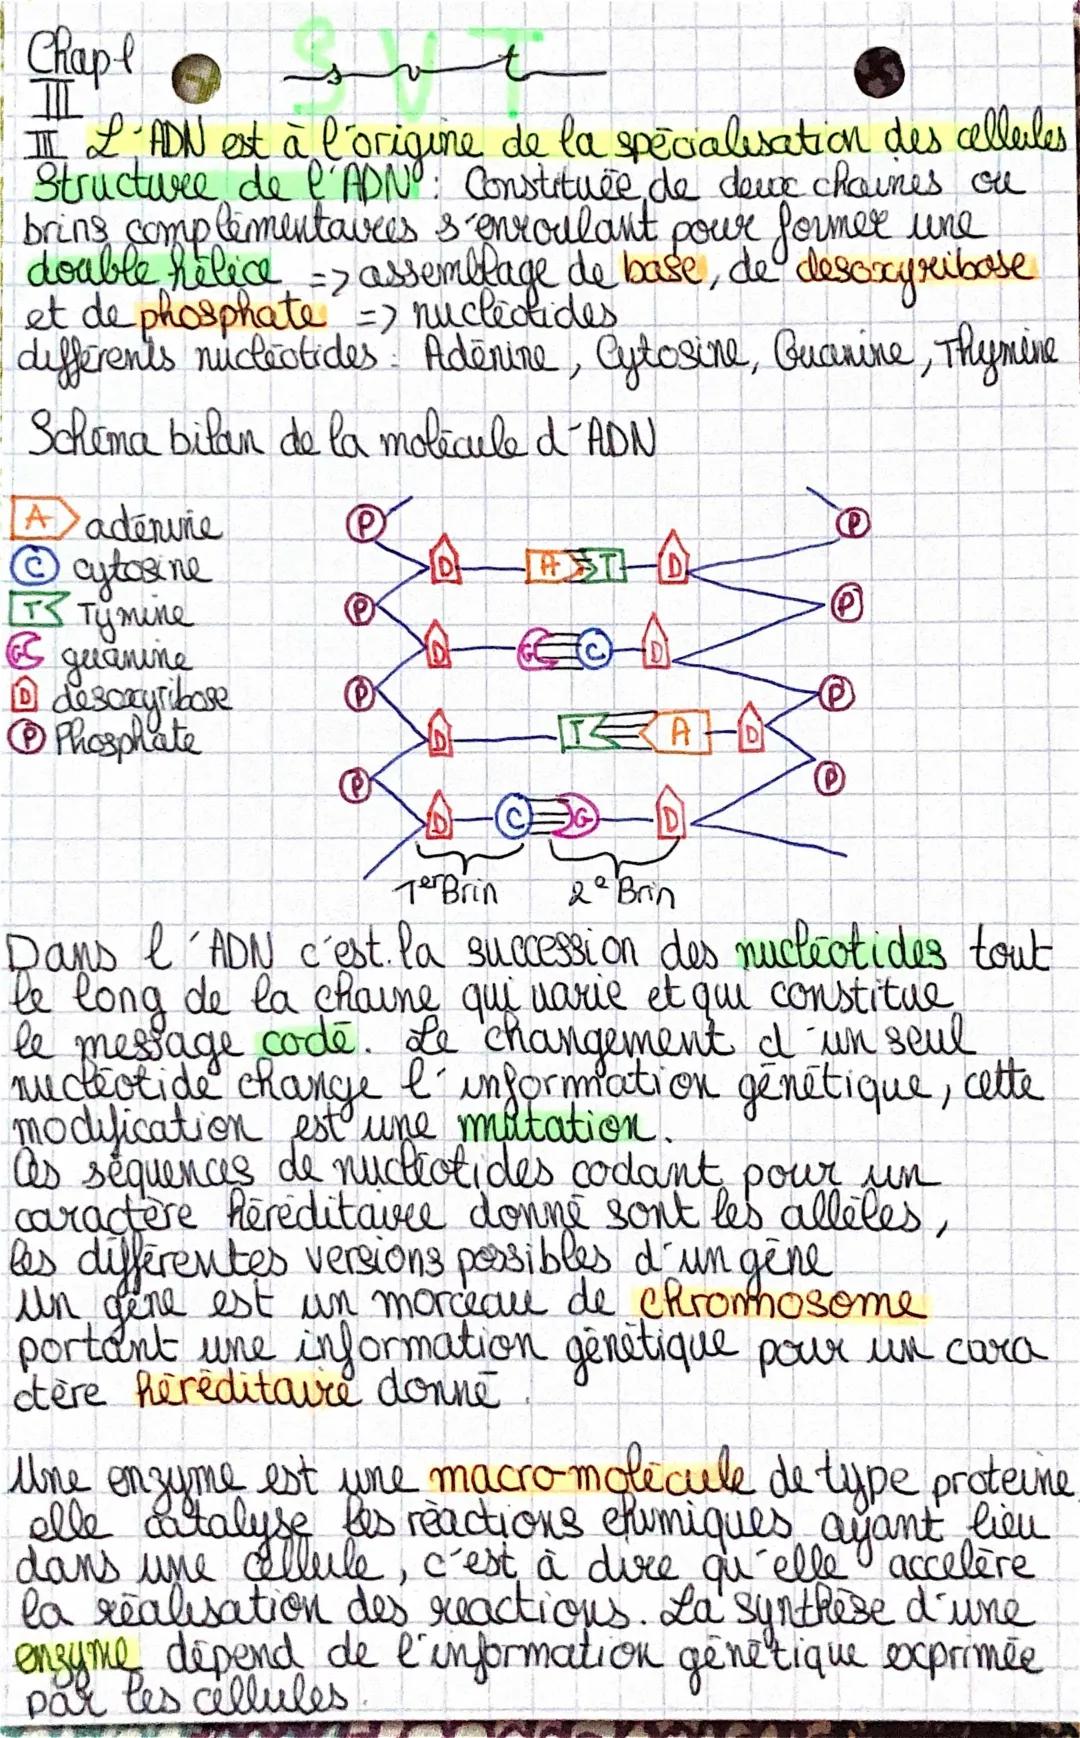 Chap 1
SVT
svt
III
III L'ADN est à l'origine de la spécialisation des cellules
Structure de l'ADN : Constituée de deux chaines ou
brins complémentaires s'enroulant pour former une
double hélice => assemblage de base, de desoxyribose
et de phosphate => nucléotides
différents nucléotides : Adénine, Cytosine, Guanine, Thymine
Schéma bilan de la molécule d'ADN
A adénine
C cytosine
T Tymine
G guanine
D desoxyribose
P Phosphate
P P
D A T D
P P
D G C D
P P
D T A D
P P
D C G D
1er Brin 2e Brin
Dans l'ADN c'est la succession des nucléotides tout
le long de la chaine qui varie et qui constitue
le message codé. Le changement d'un seul
nucléotide change l'information génétique, cette
modification est une mutation.
Ces séquences de nucléotides codant pour un
caractère héréditaire donné sont les allèles,
les différentes versions possibles d'un gène
Un gène est un morceau de chromosome
portant une information génétique pour un cara
ctère héréditaire donné.
Une enzyme est une macro-molécule de type proteine
elle catalyse les réactions chimiques ayant lieu
dans une cellule, c'est à dire qu'elle accelère
la réalisation des reactions. La synthèse d'une
enzyme dépend de l'information génétique exprimée
par les cellules.